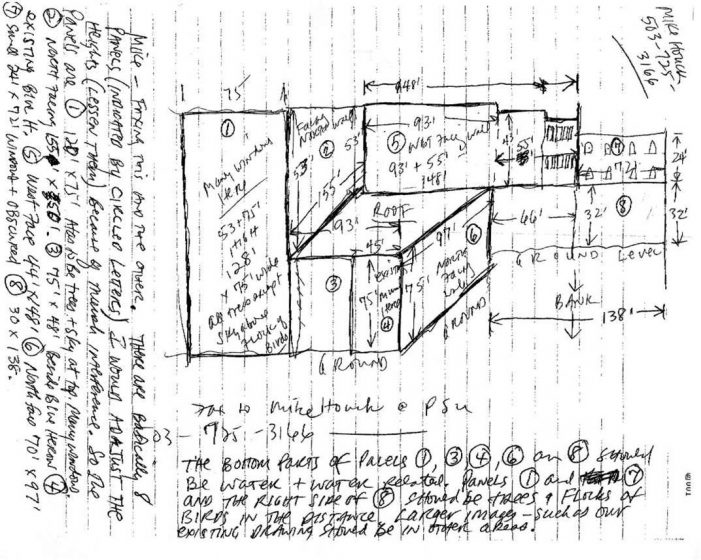 Mike Houck
503-725-
3166
75'
①
Many windows
here
53+75'
128'
x 75' wide
all trees except
sky above
flock of
Birds
Facing
North wall
②
53'
53'
155'
93'
448'
93'
⑤ West face wall
93' + 55'
148'
45'
55'
⑦
72'
24'
⑧
32'
32'
ROOF
45'
97'
③
75'
existing
mural
④
75'
North
facing
wall
⑥
46'
GROUND LEVEL
BANK
138'
GROUND
GROUND
Fax to Mike Houck @ PSU
03-725-3166
THE BOTTOM PARTS OF PANELS ①, ③ ④, ⑥ and ⑧ should
BE WATER + WATER RELATED. PANELS ① and ⑦
AND THE RIGHT SIDE OF ⑧ should BE TREES & FLOCKS OF
BIRDS IN THE DISTANCE LARGER images - such as our
existing DRAWING should BE IN other areas.
Mike - Faxing this And one other. There are Basically 8
PANELS (INDICATED BY CIRCLED LETTERS) I would ADJUST THE
Heights (LESSEN Them) Because of mural interference. So the
Panels are ① 128' x 75' Also to be trees + sky at top. Many windows
② North Facing 155' x 53'. ③ 75 x 48' Beside Blue Heron ④
existing Blue H. ⑤ West Face 44' x 148' ⑥ North face 70' x 97'
⑦ Small 24' x 72' windows + obscured ⑧ 30 x 138.